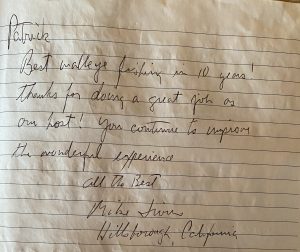 Patrick
Best walleye fishing in 10 years!
Thanks for doing a great job as
our host! You continue to improve
the wonderful experience
All the Best
Mike
Hillsborough, California